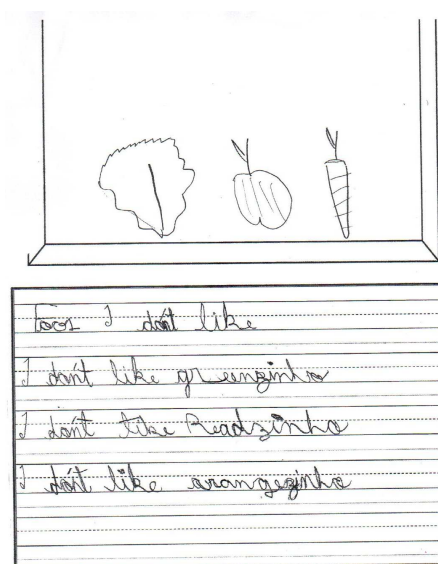 Foos I dont like
I dont like greenzinho
I dont like Readzinho
I dont like orangezinho